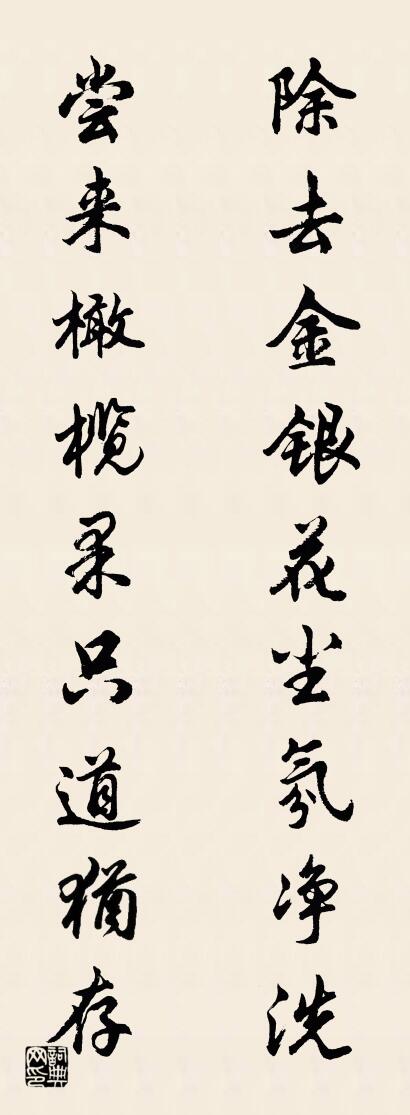 除去金银花尘氛净洗
尝来橄榄果只道犹存
词典网印